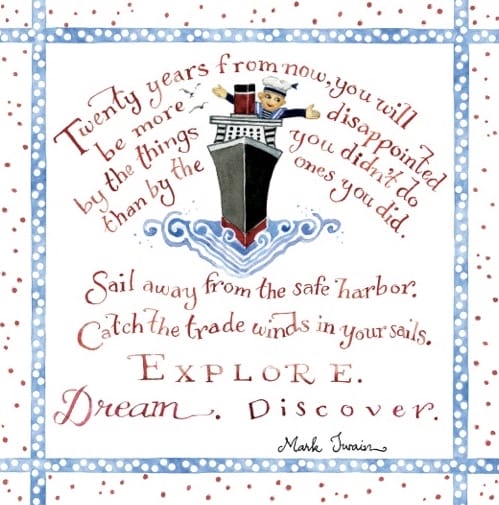 Twenty years from now, you will
be more disappointed
by the things you didn't do
than by the ones you did.
Sail away from the safe harbor.
Catch the trade winds in your sails.
EXPLORE.
Dream. Discover.
Mark Twain